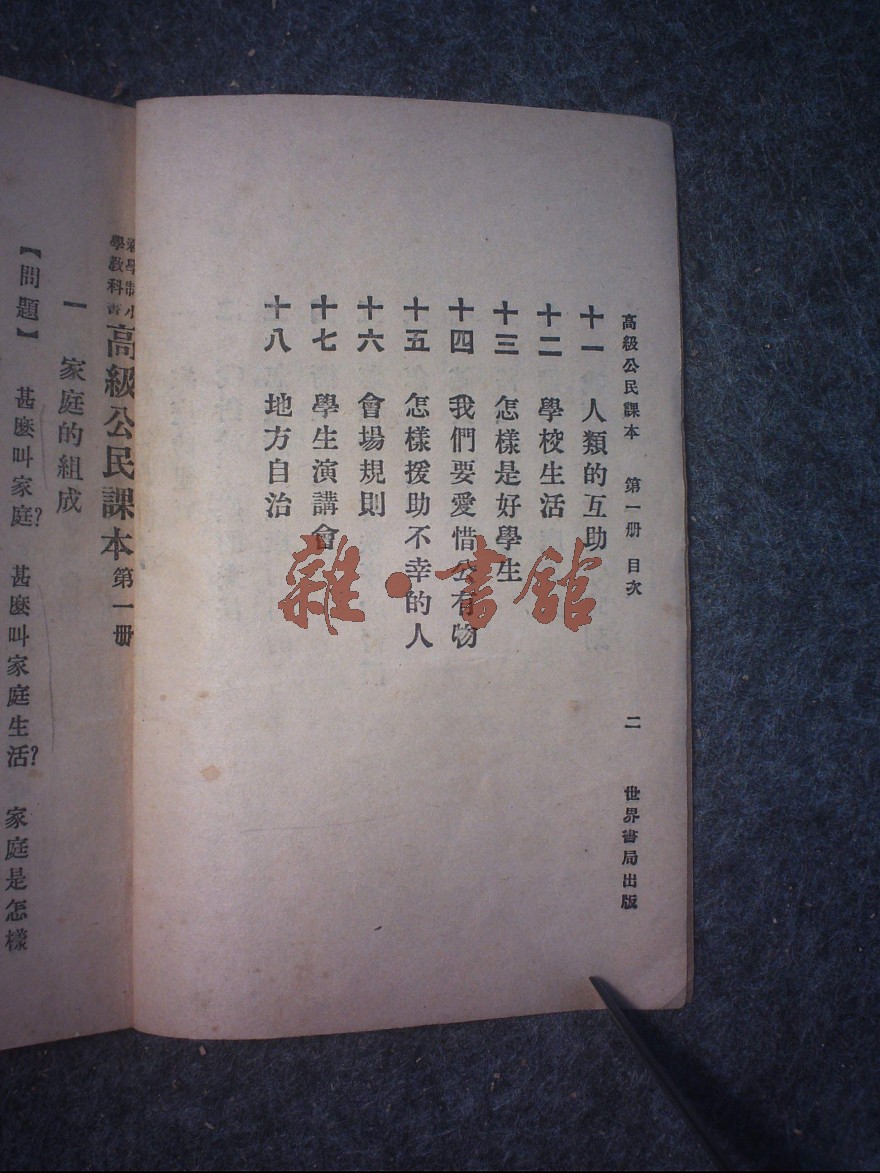 高級公民課本 第一册 目次 二 世界書局出版
十一 人類的互助
十二 學校生活
十三 怎樣是好學生
十四 我們要愛惜公有物
十五 怎樣援助不幸的人
十六 會場規則
十七 學生演講會
十八 地方自治
雜·書館
新學制小
學教科書
高級公民課本 第一册
一 家庭的組成
【問題】 甚麽叫家庭? 甚麽叫家庭生活? 家庭是怎樣